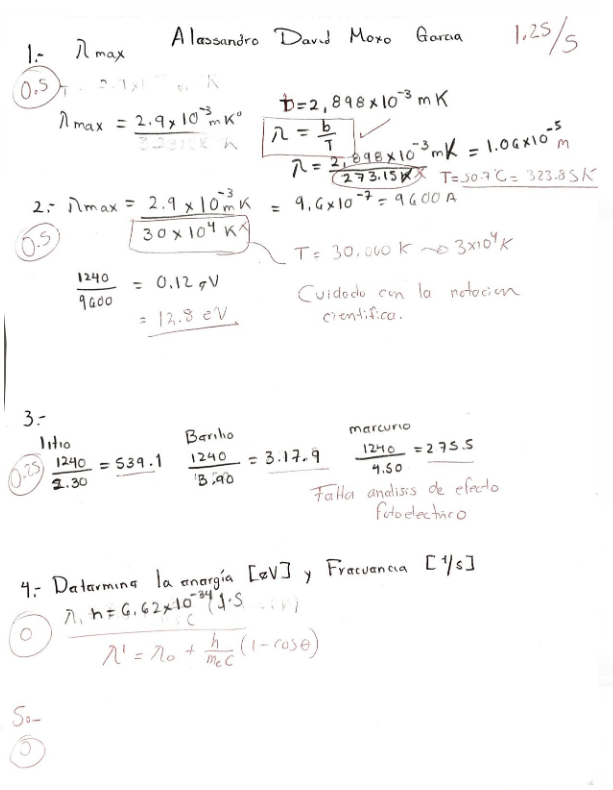 Alessandro David Moxo Garcia 1.25/5
1.- λ max
0.5
λ max = 2.9 x 10^-3 m K°
b = 2,898 x 10^-3 m K
λ = b/T ✓
λ = 2,898 x 10^-3 mK / 273.15 K x = 1.06 x 10^-5 m
T = 50.7°C = 323.85 K
2.- λ max = 2.9 x 10^-3 m K / 30 x 10^4 K x = 9.6 x 10^-7 = 9600 A
0.5
T = 30.000 K → 3x10^4 K
1240/9600 = 0.12 eV
= 12.8 eV
Cuidado con la notacion
cientifica.
3.-
litio Bariho marcurio
0.25 1240/2.30 = 539.1 1240/3.90 = 3.17.9 1240/4.50 = 275.5
Falta analisis de efecto
fotoelectrico
4.- Determina la energía [eV] y Frecuencia [1/s]
λ, h = 6.62 x 10^-34 (J.S
0
λ' = λ0 + h/mec (1 - cosθ)
5.-
0